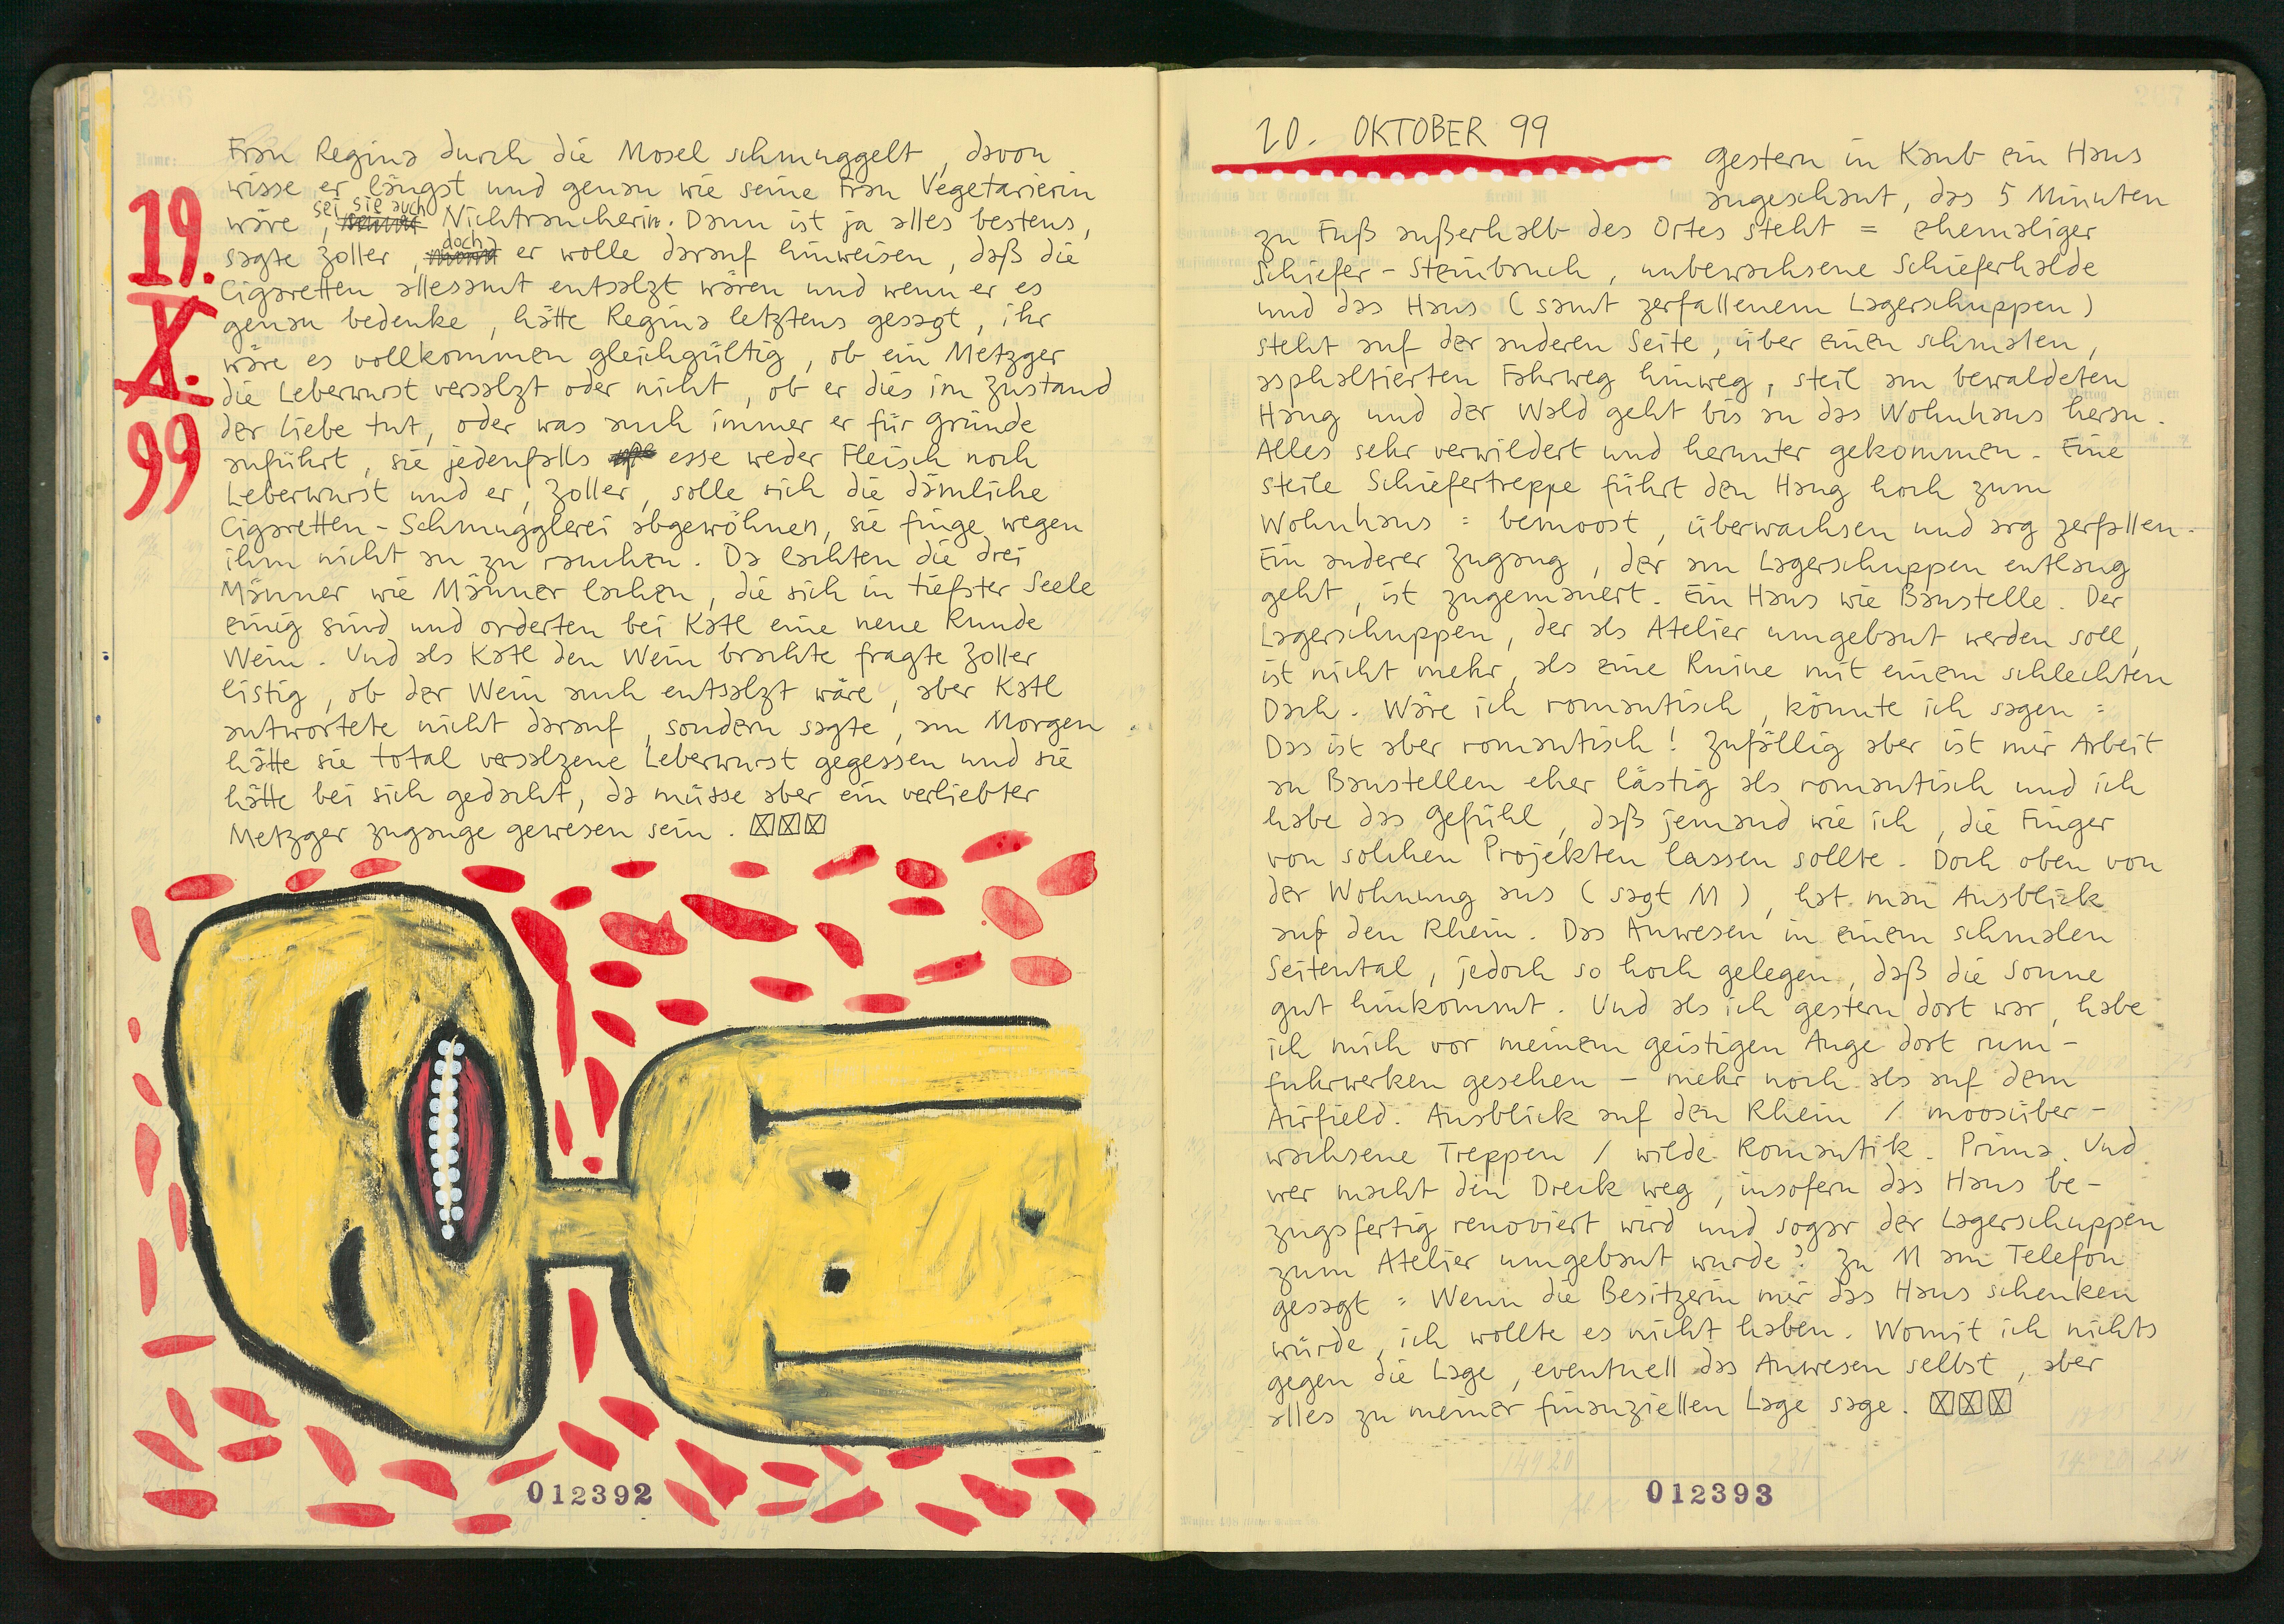 19.
X.
99
Frau Regina durch die Mosel schmuggelt, davon
wisse er längst und genau wie seine Frau Vegetarierin
sei sie auch
wäre, Nichtraucherin. Dann ist ja alles bestens,
doch
sagte Zoller, er wolle darauf hinweisen, daß die
Cigaretten allesamt entsalzt wären und wenn er es
genau bedenke, hätte Regina letztens gesagt, ihr
wäre es vollkommen gleichgültig, ob ein Metzger
die Leberwurst versalzt oder nicht, ob er dies im Zustand
der Liebe tut, oder was auch immer er für Gründe
anführt, sie jedenfalls esse weder Fleisch noch
Leberwurst und er, Zoller, solle sich die dämliche
Cigaretten-Schmugglerei abgewöhnen, sie finge wegen
ihm nicht an zu rauchen. Da lachten die drei
Männer wie Männer lachen, die sich in tiefster Seele
einig sind und orderten bei Katl eine neue Runde
Wein. Und als Katl den Wein brachte fragte Zoller
listig, ob der Wein auch entsalzt wäre, aber Katl
antwortete nicht darauf, sondern sagte, am Morgen
hätte sie total versalzene Leberwurst gegessen und sie
hätte bei sich gedacht, da müsse aber ein verliebter
Metzger zugange gewesen sein. ☒☒☒
012392
20. OKTOBER 99
Gestern in Kaub ein Haus
angeschaut, das 5 Minuten
zu Fuß außerhalb des Ortes steht = ehemaliger
Schiefer-Steinbruch, unbewachsene Schieferhalde
und das Haus (samt zerfallenem Lagerschuppen)
steht auf der anderen Seite, über einen schmalen,
asphaltierten Fahrweg hinweg, steil am bewaldeten
Hang und der Wald geht bis an das Wohnhaus heran.
Alles sehr verwildert und herunter gekommen. Eine
steile Schiefertreppe führt den Hang hoch zum
Wohnhaus = bemoost, überwachsen und arg zerfallen.
Ein anderer Zugang, der am Lagerschuppen entlang
geht, ist zugemauert. Ein Haus wie Baustelle. Der
Lagerschuppen, der als Atelier umgebaut werden soll,
ist nicht mehr, als eine Ruine mit einem schlechten
Dach. Wäre ich romantisch, könnte ich sagen =
Das ist aber romantisch! Zufällig aber ist mir Arbeit
an Baustellen eher lästig als romantisch und ich
habe das Gefühl, daß jemand wie ich, die Finger
von solchen Projekten lassen sollte. Doch oben von
der Wohnung aus (sagt M), hat man Ausblick
auf den Rhein. Das Anwesen in einem schmalen
Seitental, jedoch so hoch gelegen, daß die Sonne
gut hinkommt. Und als ich gestern dort war, habe
ich mich vor meinem geistigen Auge dort rum-
fuhrwerken gesehen - mehr noch als auf dem
Airfield. Ausblick auf den Rhein / moosüber-
wachsene Treppen / wilde Romantik. Prima. Und
wer macht den Dreck weg, insofern das Haus be-
zugsfertig renoviert wird und sogar der Lagerschuppen
zum Atelier umgebaut wurde? Zu M am Telefon
gesagt = Wenn die Besitzerin mir das Haus schenken
würde, ich wollte es nicht haben. Womit ich nichts
gegen die Lage, eventuell das Anwesen selbst, aber
alles zu meiner finanziellen Lage sage. ☒☒☒
012393